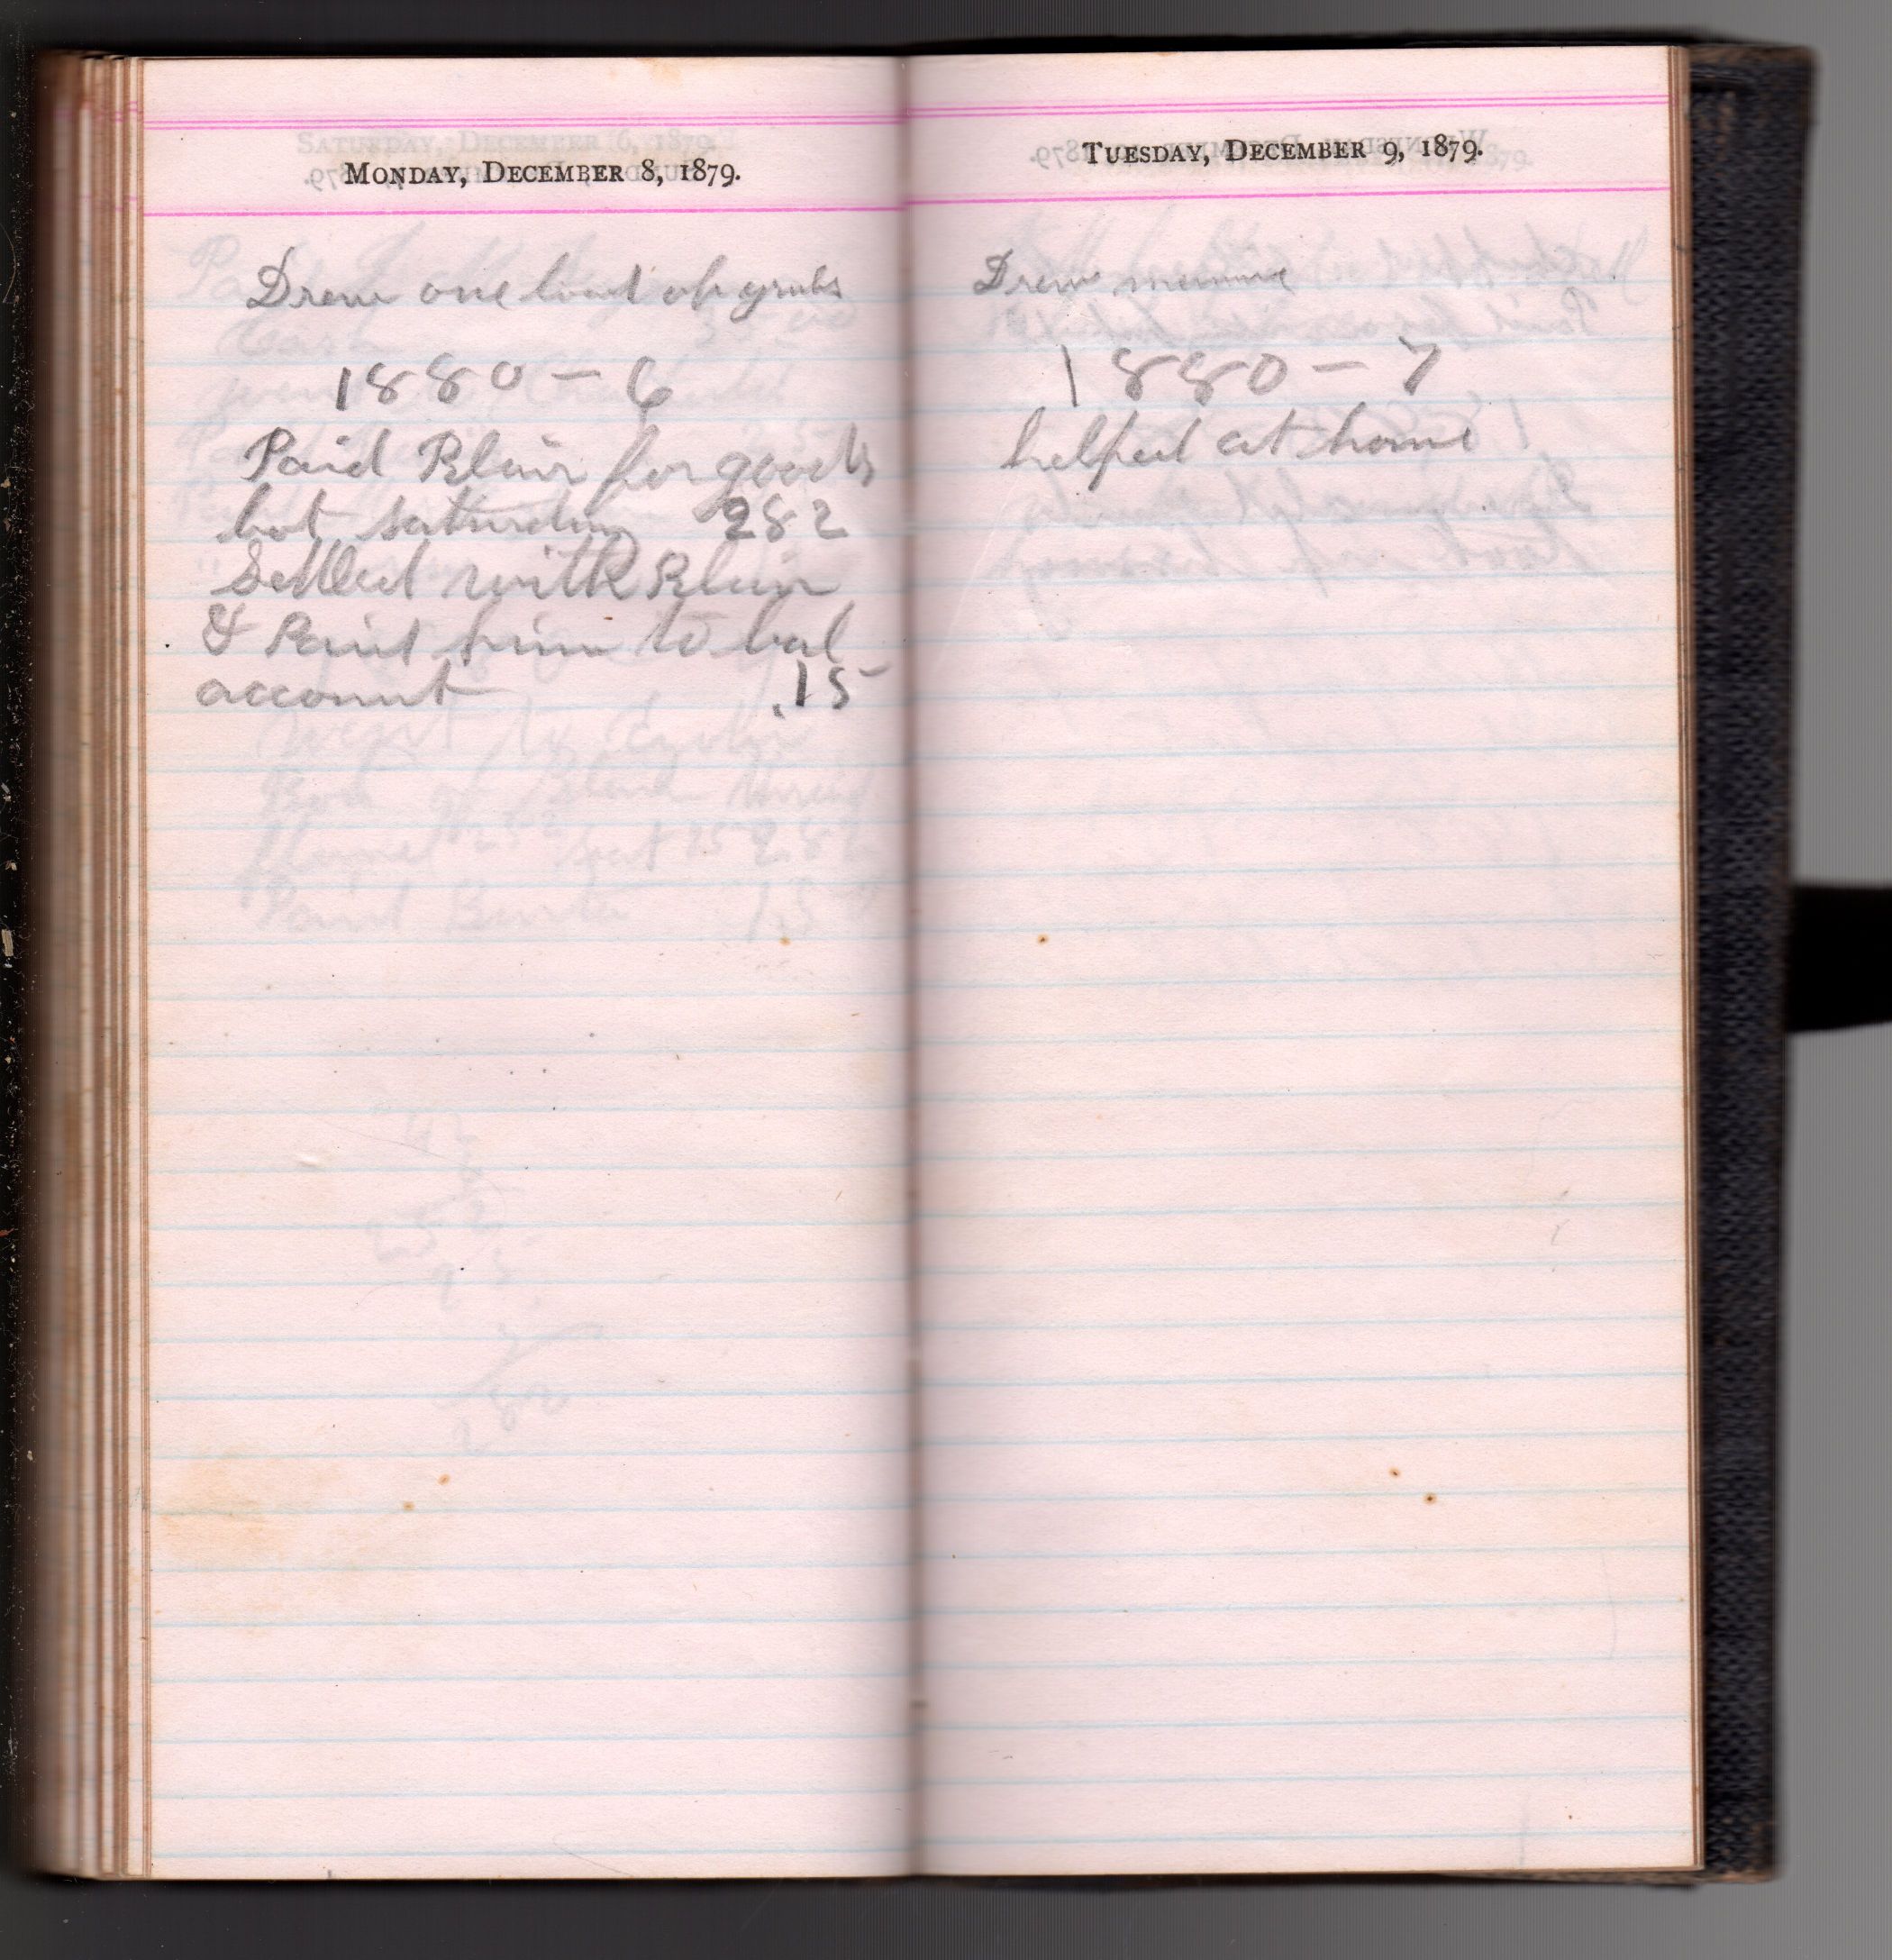 MONDAY, DECEMBER 8, 1879.
Drew one load of grubs
1880 - 6
Paid Blair for goods
bot saturday 282
Settled with Blair
& Paid him to bal
account .15
TUESDAY, DECEMBER 9, 1879.
Drew manure
1880 - 7
helped at home